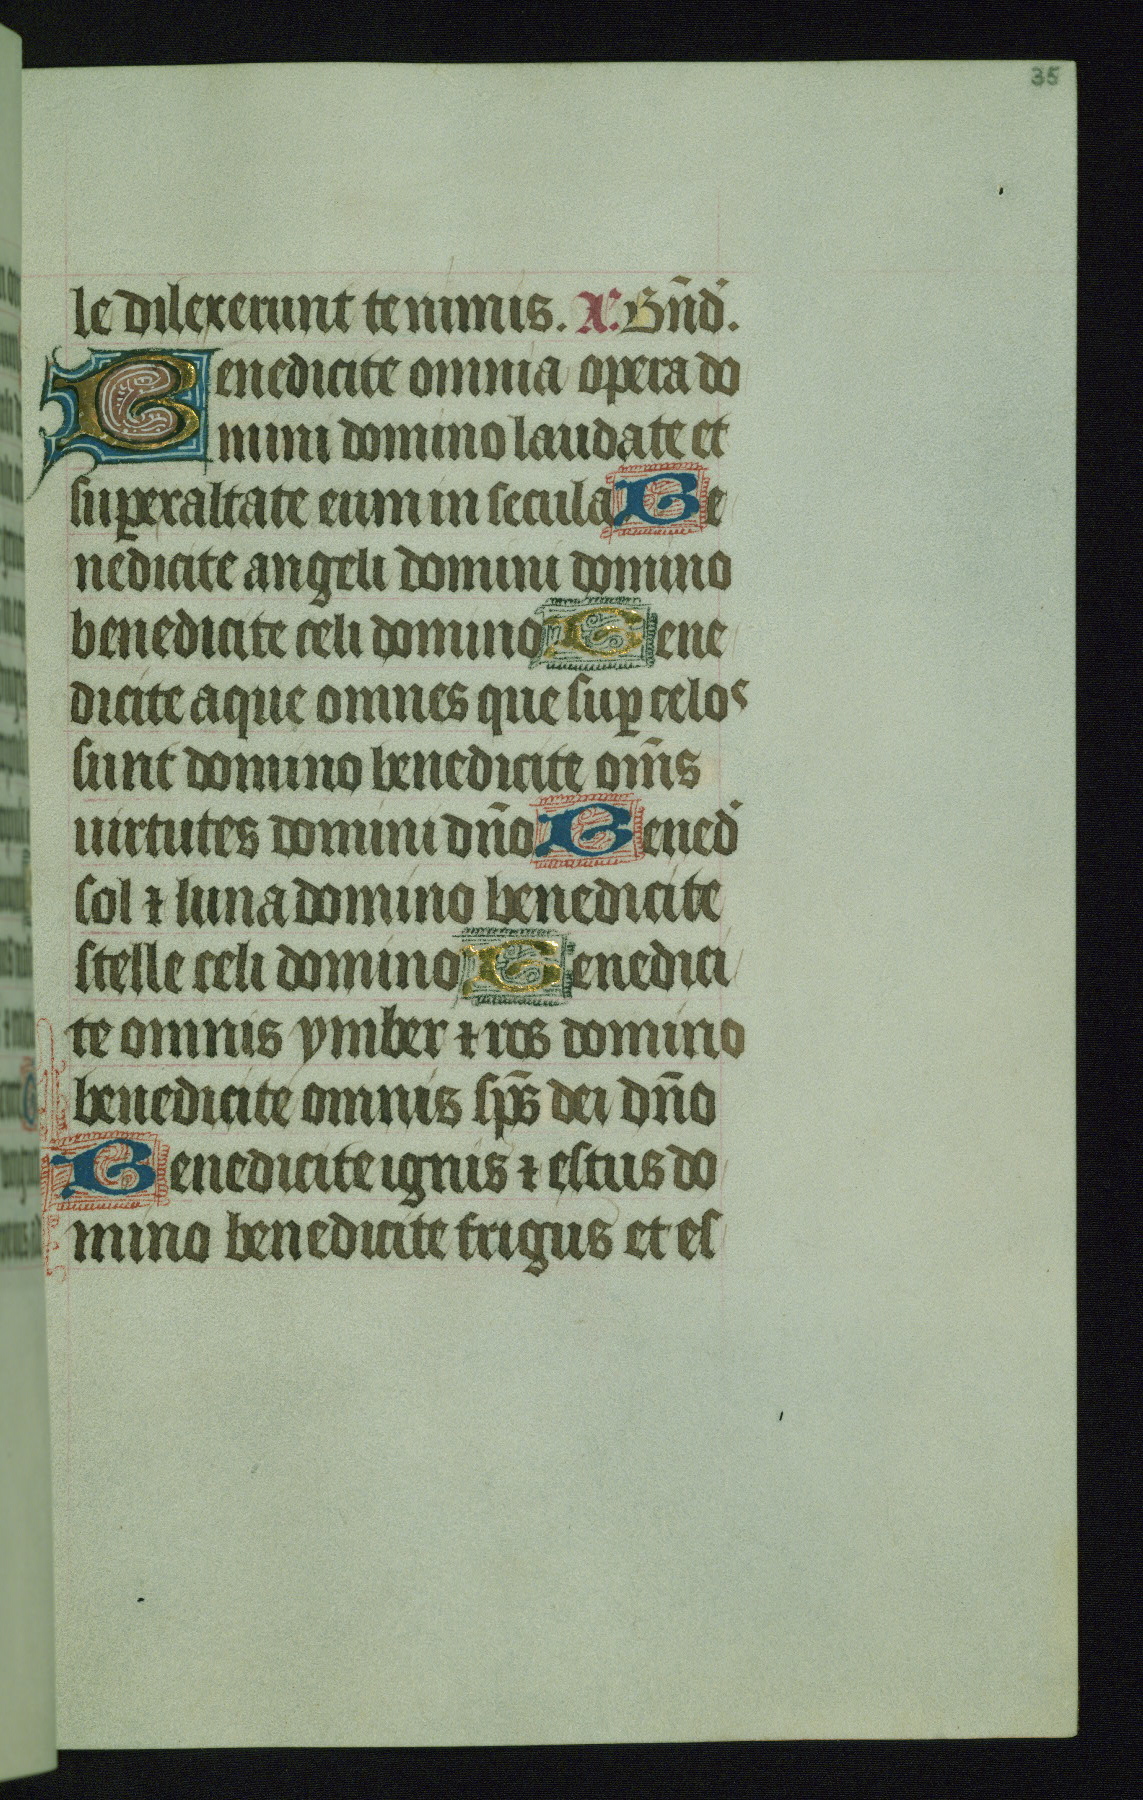 35
le dilexerunt te nimis. A͞. Bn̄d̾.
Benedicite omnia opera do
mini domino laudate et
superaltate eum in secula Be
nedicite angeli domini domino
benedicite celi domino Bene
dicite aque omnes que sup celos
sunt domino benedicite om̄s
uirtutes domini dn̄o Bened̾
sol ⁊ luna domino benedicite
stelle celi domino Benedici
te omnis ymber ⁊ ros domino
benedicite omnis sp̄s dei dn̄o
Benedicite ignis ⁊ estus do
mino benedicite frigus et es